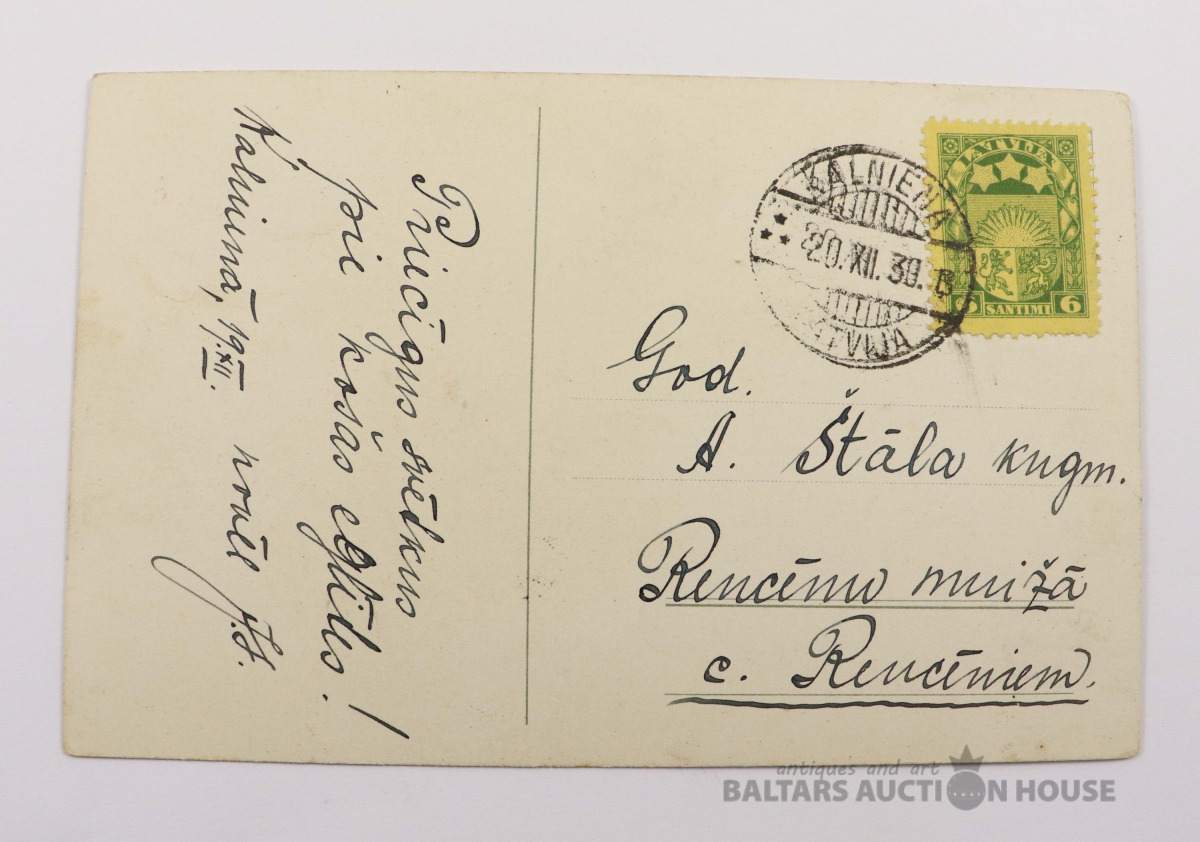 Priecīgus svēdkus
pie košās eglītes!
Kalnienā, 19.XII. novēl J.A.
KALNIENA
20.XII.30. B
LATVIJA
LATVIJA
6 SANTIMI 6
God.
A. Štāla kngm.
Rencēnu muižā
c. Rencēniem.
antiques and art
BALTARS AUCTION HOUSE